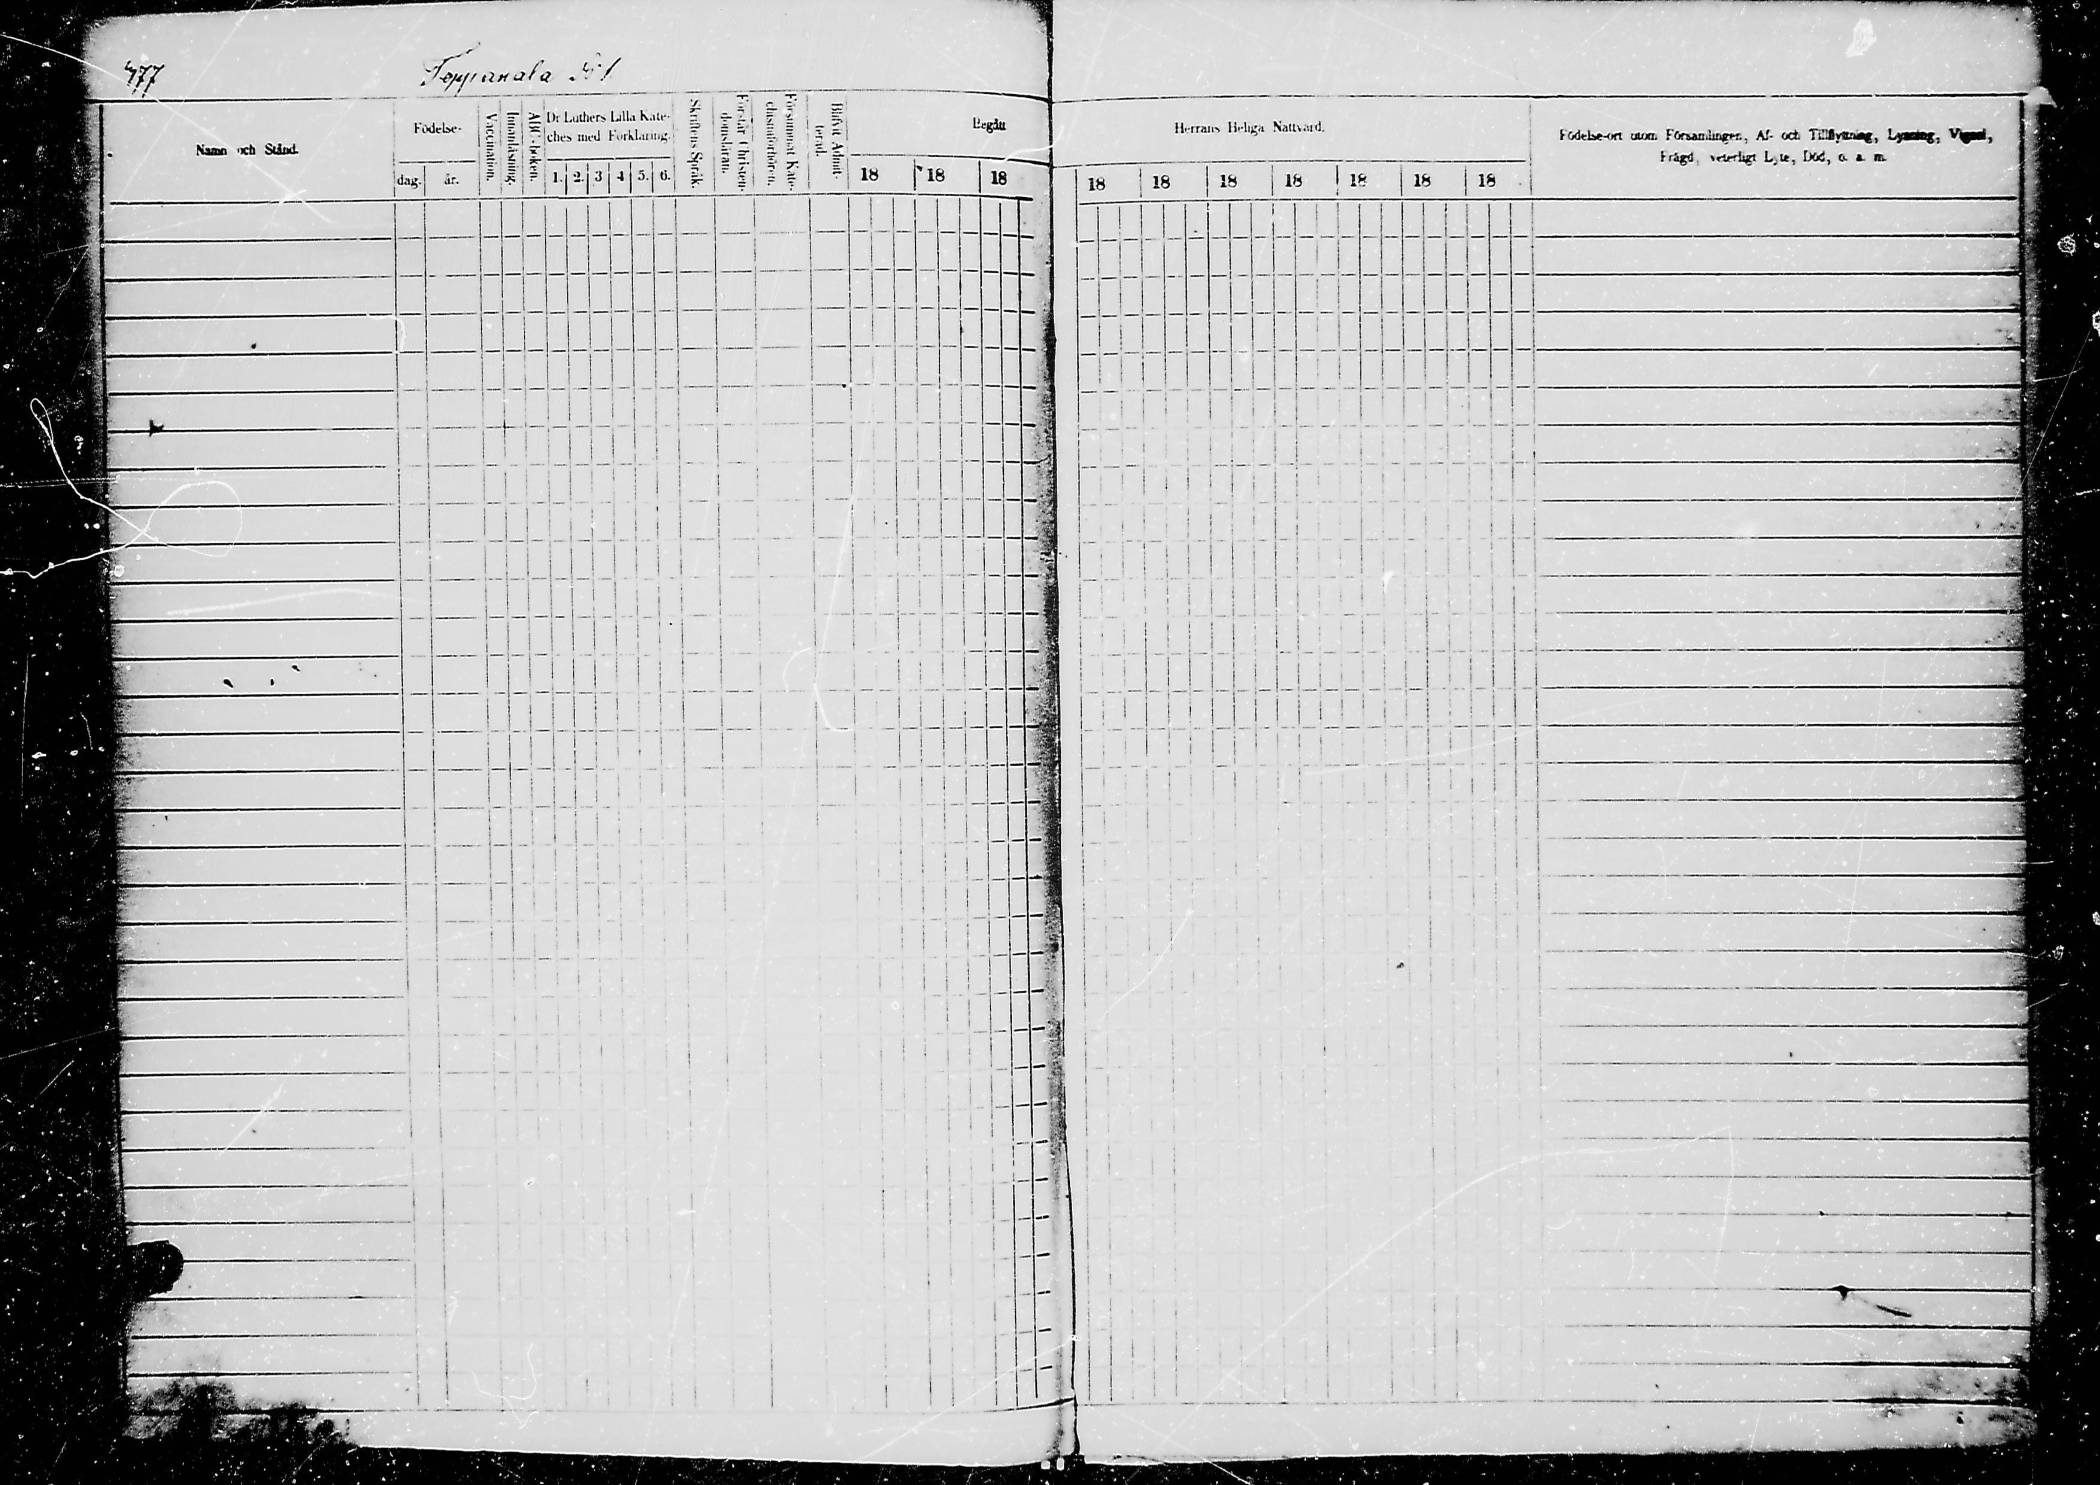 477
Teppanala № 1
Namn och Stånd.
Födelse-
dag.
år.
Vaccination.
Innanläsning.
ABC-boken.
Dr Luthers Lilla Kate-
ches med Förklaring.
1. 2. 3 4 5. 6.
Skriftens Språk.
Förstår Christen-
domsläran.
Försummat Kate-
chismiförhören.
Blifvit Admit-
terad.
Begått
18 18 18
Herrans Heliga Nattvard.
18 18 18 18 18 18 18
Födelse-ort utom Församlingen, Af- och Tillflyttning, Lysning, Vigsel,
Frägd, veterligt Lyte, Död, o. s. m.